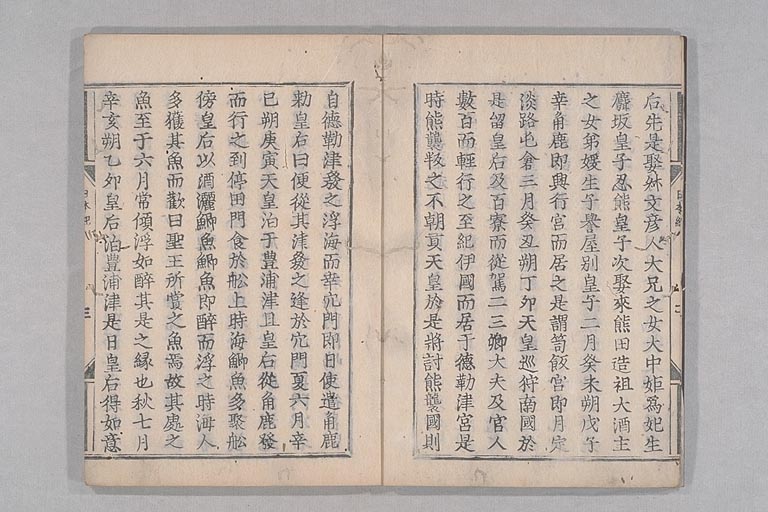 后先是娶叔父彦人大兄之女大中姫爲妃生
麛坂皇子忍熊皇子次娶來熊田造祖大酒主
之女弟媛生子譽屋別皇子二月癸未朔戊子
幸角鹿即興行宮而居之是謂笥飯宮即月定
淡路屯倉三月癸丑朔丁夘天皇巡狩南國於
是留皇后及百寮而從駕二三卿大夫及官人
數百而輕行之至紀伊國而居于德勒津宮是
時熊襲叛之不朝貢天皇於是將討熊襲國則
自德勒津發之浮海而幸穴門即日使遣角鹿
勅皇后曰便從其津發之逢於穴門夏六月辛
巳朔庚寅天皇泊于豊浦津且皇后從角鹿發
而行之到渟田門食於舩上時海鯽魚多聚舩
傍皇后以酒灑鯽魚鯽魚即醉而浮之時海人
多獲其魚而歡曰聖王所賞之魚焉故其處之
魚至于六月常傾浮如醉其是之縁也秋七月
辛亥朔乙夘皇后泊豊浦津是日皇后得如意